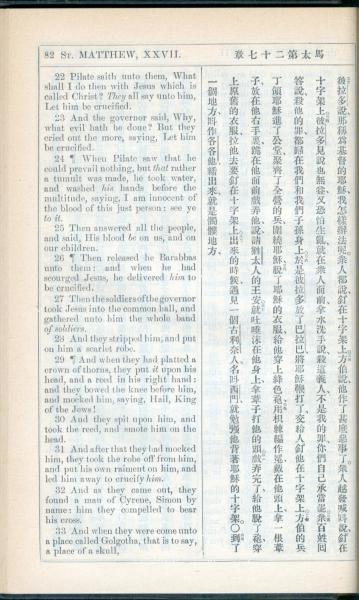 82 St. MATTHEW, XXVII.
馬太第二十七章
22 Pilate saith unto them, What
shall I do then with Jesus which is
called Christ? They all say unto him,
Let him be crucified.
23 And the governor said, Why,
what evil hath he done? But they
cried out the more, saying, Let him
be crucified.
24 ¶ When Pilate saw that he
could prevail nothing, but that rather
a tumult was made, he took water,
and washed his hands before the
multitude, saying, I am innocent of
the blood of this just person: see ye
to it.
25 Then answered all the people,
and said, His blood be on us, and on
our children.
26 ¶ Then released he Barabbas
unto them: and when he had
scourged Jesus, he delivered him to
be crucified.
27 Then the soldiers of the governor
took Jesus into the common hall, and
gathered unto him the whole band
of soldiers.
28 And they stripped him, and put
on him a scarlet robe.
29 ¶ And when they had platted
a crown of thorns, they put it upon his
head, and a reed in his right hand:
and they bowed the knee before him,
and mocked him, saying, Hail, King
of the Jews!
30 And they spit upon him, and
took the reed, and smote him on the
head.
31 And after that they had mocked
him, they took the robe off from him,
and put his own raiment on him, and
led him away to crucify him.
32 And as they came out, they
found a man of Cyrene, Simon by
name: him they compelled to bear
his cross.
33 And when they were come unto
a place called Golgotha, that is to say,
a place of a skull,
彼拉多說那稱爲基督的耶穌我怎樣辦法呢衆人都說釘在十字架上方伯說他作了甚麽惡事了衆人越發喊呌說釘在
十字架上彼拉多見說也無益又恐怕生亂就在衆人面前拿水洗手說殺這義人不是我的罪你們自己承當罷衆百姓回
答說殺他的罪都歸在我們和我們子孫身上於是彼拉多放了巴拉巴將耶穌鞭打了交給人釘他在十字架上方伯的兵
丁領耶穌進了公堂聚齊了全營的兵圍繞耶穌脫了耶穌的衣服給他穿上絳色袍用荆棘編作冕戴在他頭上拿一根葦
子放在他右手裏跪在他面前戲弄他說請猶太人的王安就吐唾沫在他身上拿葦子打他的頭戲弄完了給他脫了袍穿
上原舊的衣服拉他去要釘在十字架上出來的時候遇見一個古利奈人名呌西門就勉强他背著耶穌的十字架○到了
一個地方名叫各各他繙出來就是髑髏地方